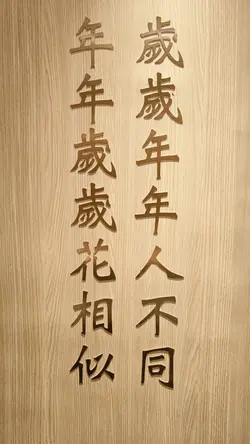 歲歲年年人不同
年年歲歲花相似